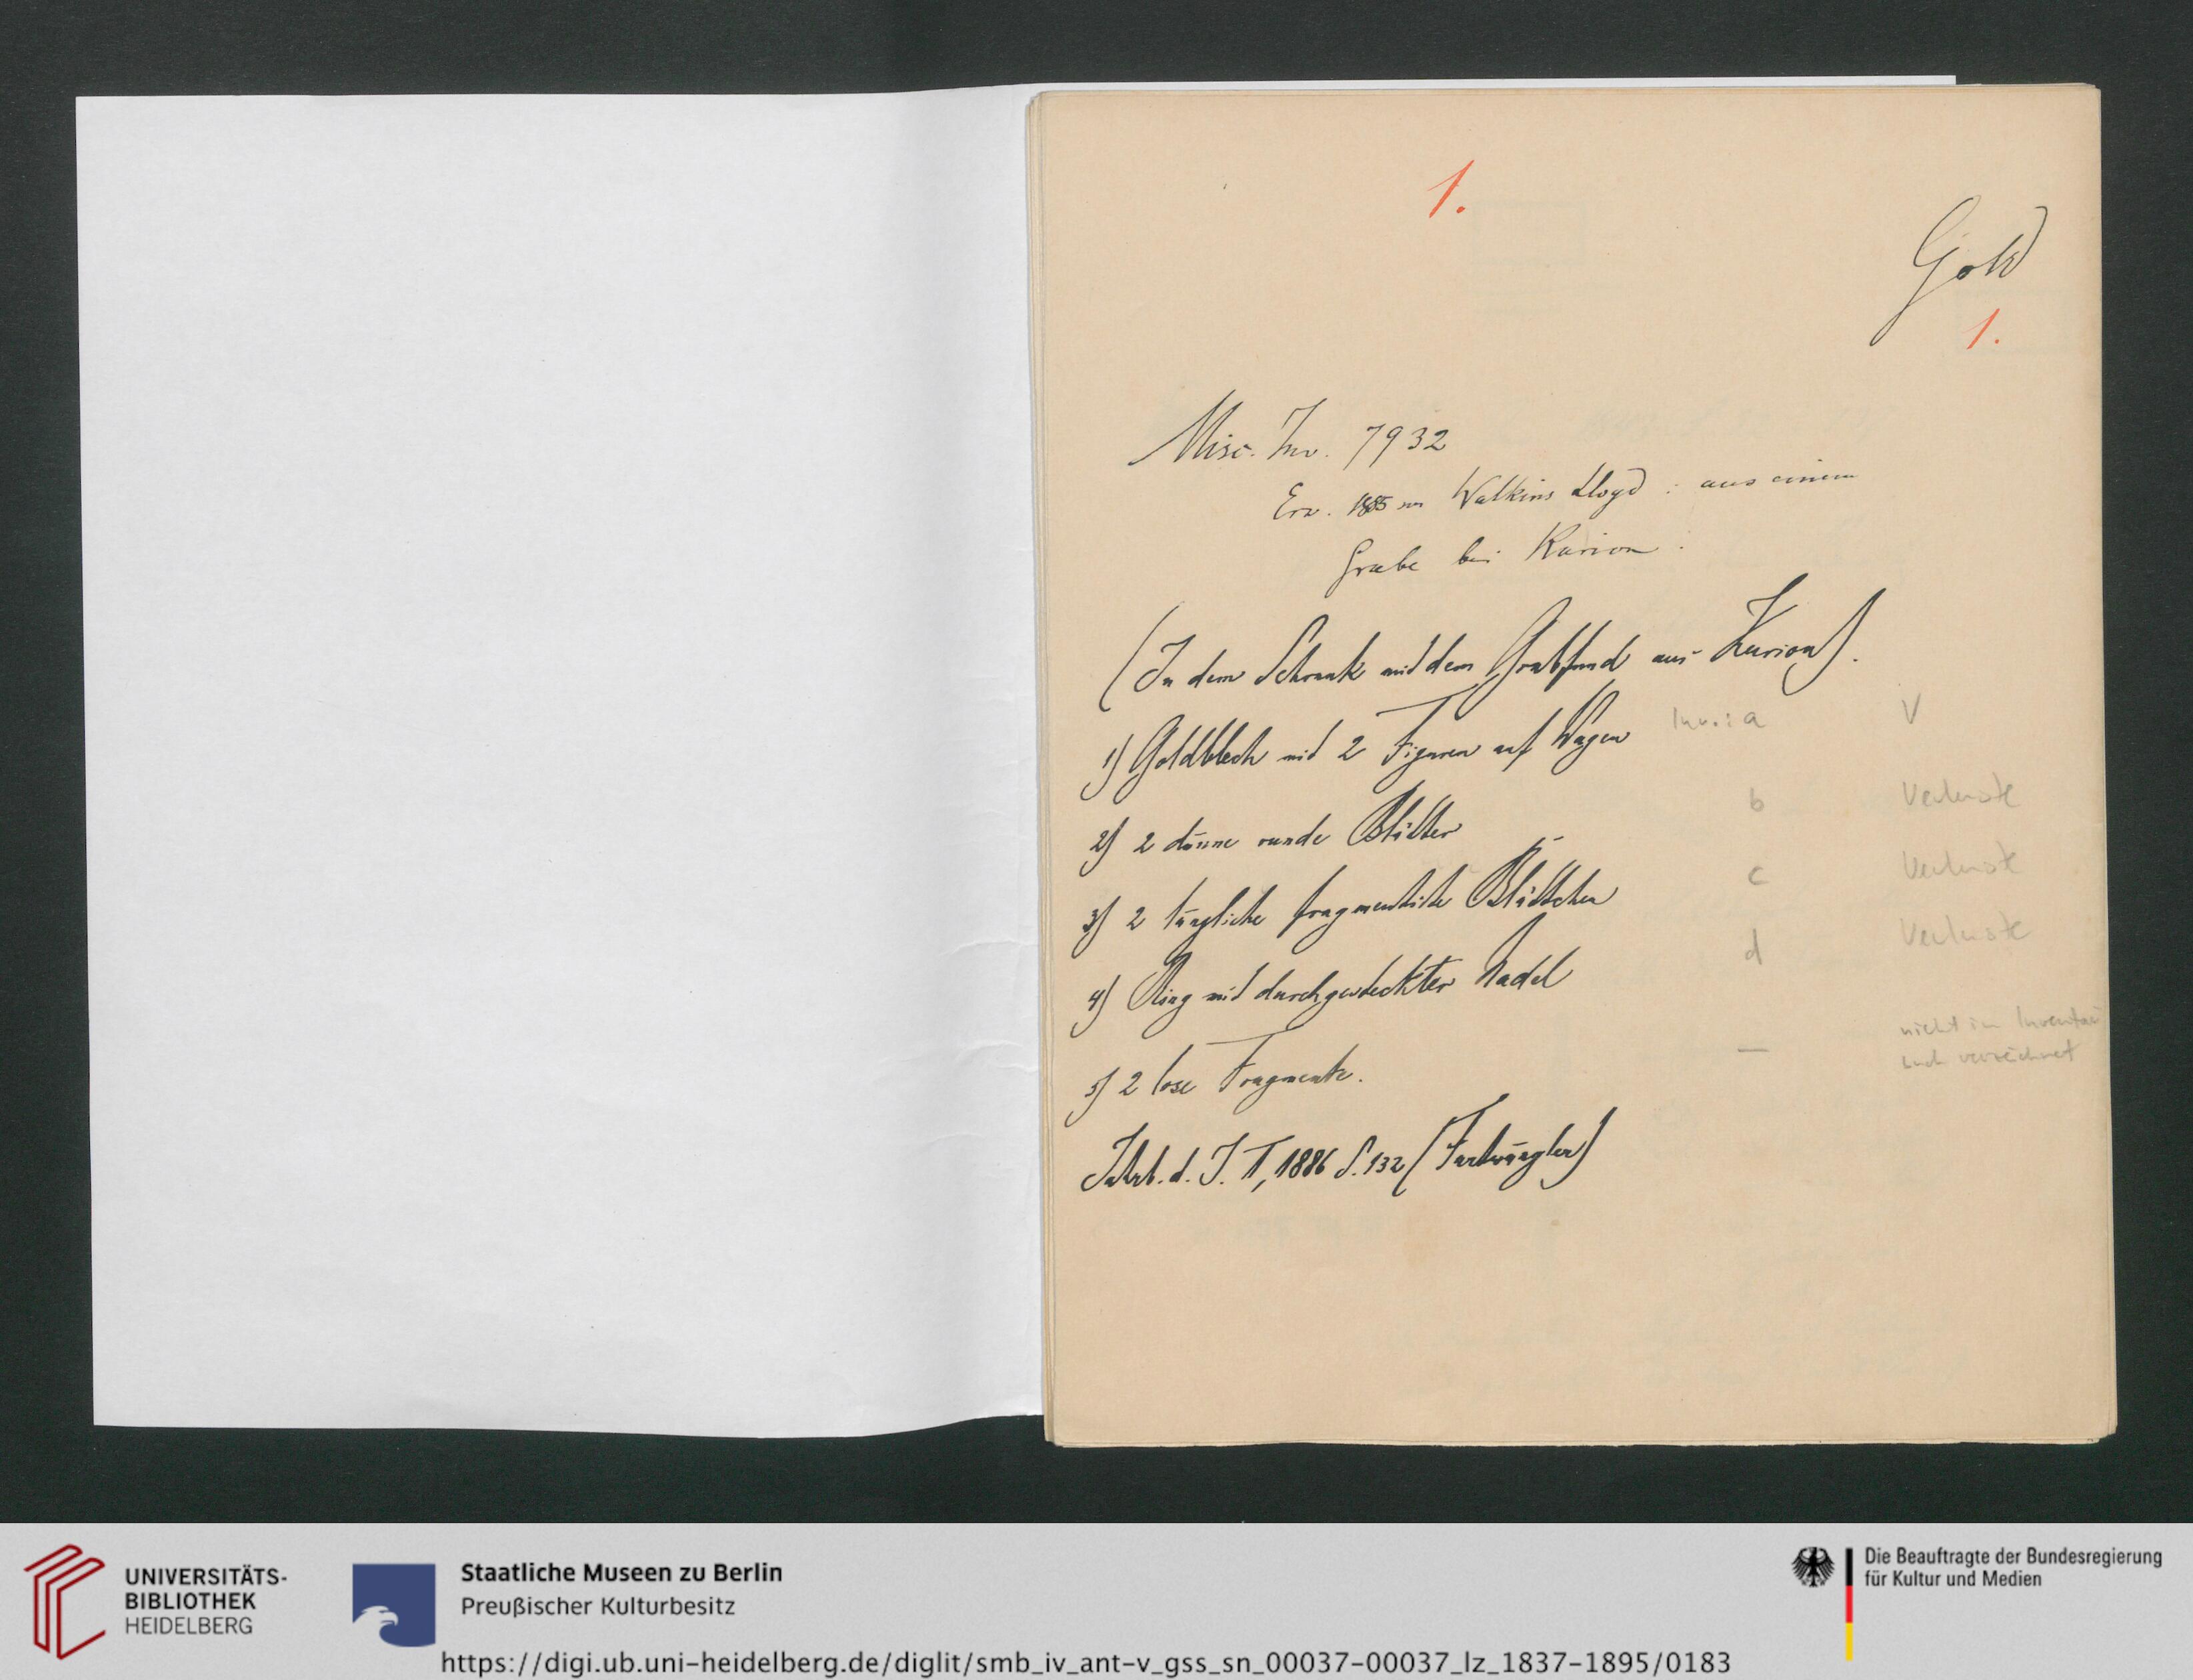 1.
Gold
1.
Misc. Inv. 7932
Erw. 1885 von Watkins Lloyd : aus einem
Grabe bei Kurion.
(In dem Schrank mit dem Grabfund aus Kurion).
1) Goldblech mit 2 Figuren auf Wagen Inv.: a V
2) 2 dünne runde Blätter b Verluste
3) 2 längliche fragmentirte Blättchen c Verluste
4) Ring mit durchgesteckter Nadel d Verluste
5) 2 lose Fragmente. — nicht im Inventar
verzeichnet
Jahrb. d. I. 1886 S. 132 (Furtwängler)
UNIVERSITÄTS-
BIBLIOTHEK
HEIDELBERG
Staatliche Museen zu Berlin
Preußischer Kulturbesitz
Die Beauftragte der Bundesregierung
für Kultur und Medien
https://digi.ub.uni-heidelberg.de/diglit/smb_iv_ant-v_gss_sn_00037-00037_lz_1837-1895/0183